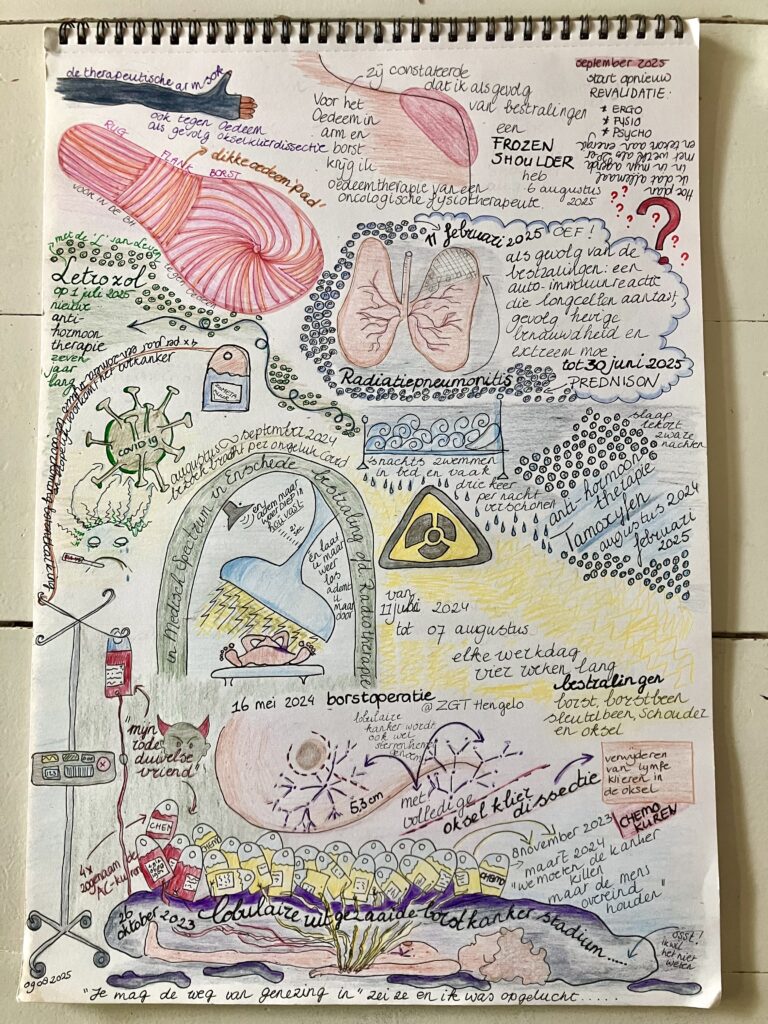 de therapeutische arm sok
ook tegen Oedeem
als gevolg okselklierdissectie
dikke oedeem 'pad'
RUG
FLANK
BORST
VOOR IN DE BH
tegen oedeem
Voor het
Oedeem in
arm en
borst
krijg ik
oedeemtherapie van een
oncologische fysiotherapeute.
zij constateerde
dat ik als gevolg
van bestralingen
een
FROZEN
SHOULDER
heb
6 augustus
2025
september 2025
start opnieuw
REVALIDATIE:
* ERGO
* FYSIO
* PSYCHO
Hoe plan
ik dat allemaal
in in mijn agenda
met werk als ZZP'er
en teken aan energie
?
? ? ? ? ? ? ?
met de 'L' van Leven
Letrozol
op 1 juli 2025
nieuwe
anti-
hormoon
therapie
zeven
jaar
lang
11 februari 2025 OEF!
als gevolg van de
bestralingen: een
auto-immuunreactie
die longcellen aantast
gevolg hevige
benauwdheid en
extreem moe
tot 30 juni 2025
PREDNISON
Radiatiepneumonitis
covid 19
augustus september 2024
Medisch Spectrum in Enschede
bestraling afd. Radiotherapie
en adem maar
weer diep in
hou vast
21
sec
en laat
u maar
weer
los
ademt
u maar
door
snachts zwemmen
in bed en vaak
drie keer
per nacht
verschonen
slaap
tekort
zware
nachten
anti-hormoon
therapie
Tamoxyfen
augustus 2024
februari
2025
van
11 juli 2024
tot 07 augustus
elke werkdag
vier weken lang
bestralingen
borst, borstbeen
sleutelbeen, schouder
en oksel
16 mei 2024 borstoperatie
@ ZGT Hengelo
lobulaire
kanker wordt
ook wel
sterrenhemel
5.3 cm
met
volledige
oksel klier
dissectie
verwijderen
van lymfe
klieren in
de oksel
"mijn
rode
duivelse
vriend"
CHEMO
KUREN
8 november 2023
maart 2024
"we moeten de kanker
killen
maar de mens
overeind
houden"
4x
zogenaamde
AC-kuren
CHEM
CHEMO
CHEMO
26
oktober 2023
lobulaire uitgezaaide borstkanker stadium.....
ssst!
ik wil
het niet
weten
09 09 2025
"Je mag de weg van genezing in" zei ze en ik was opgelucht.....